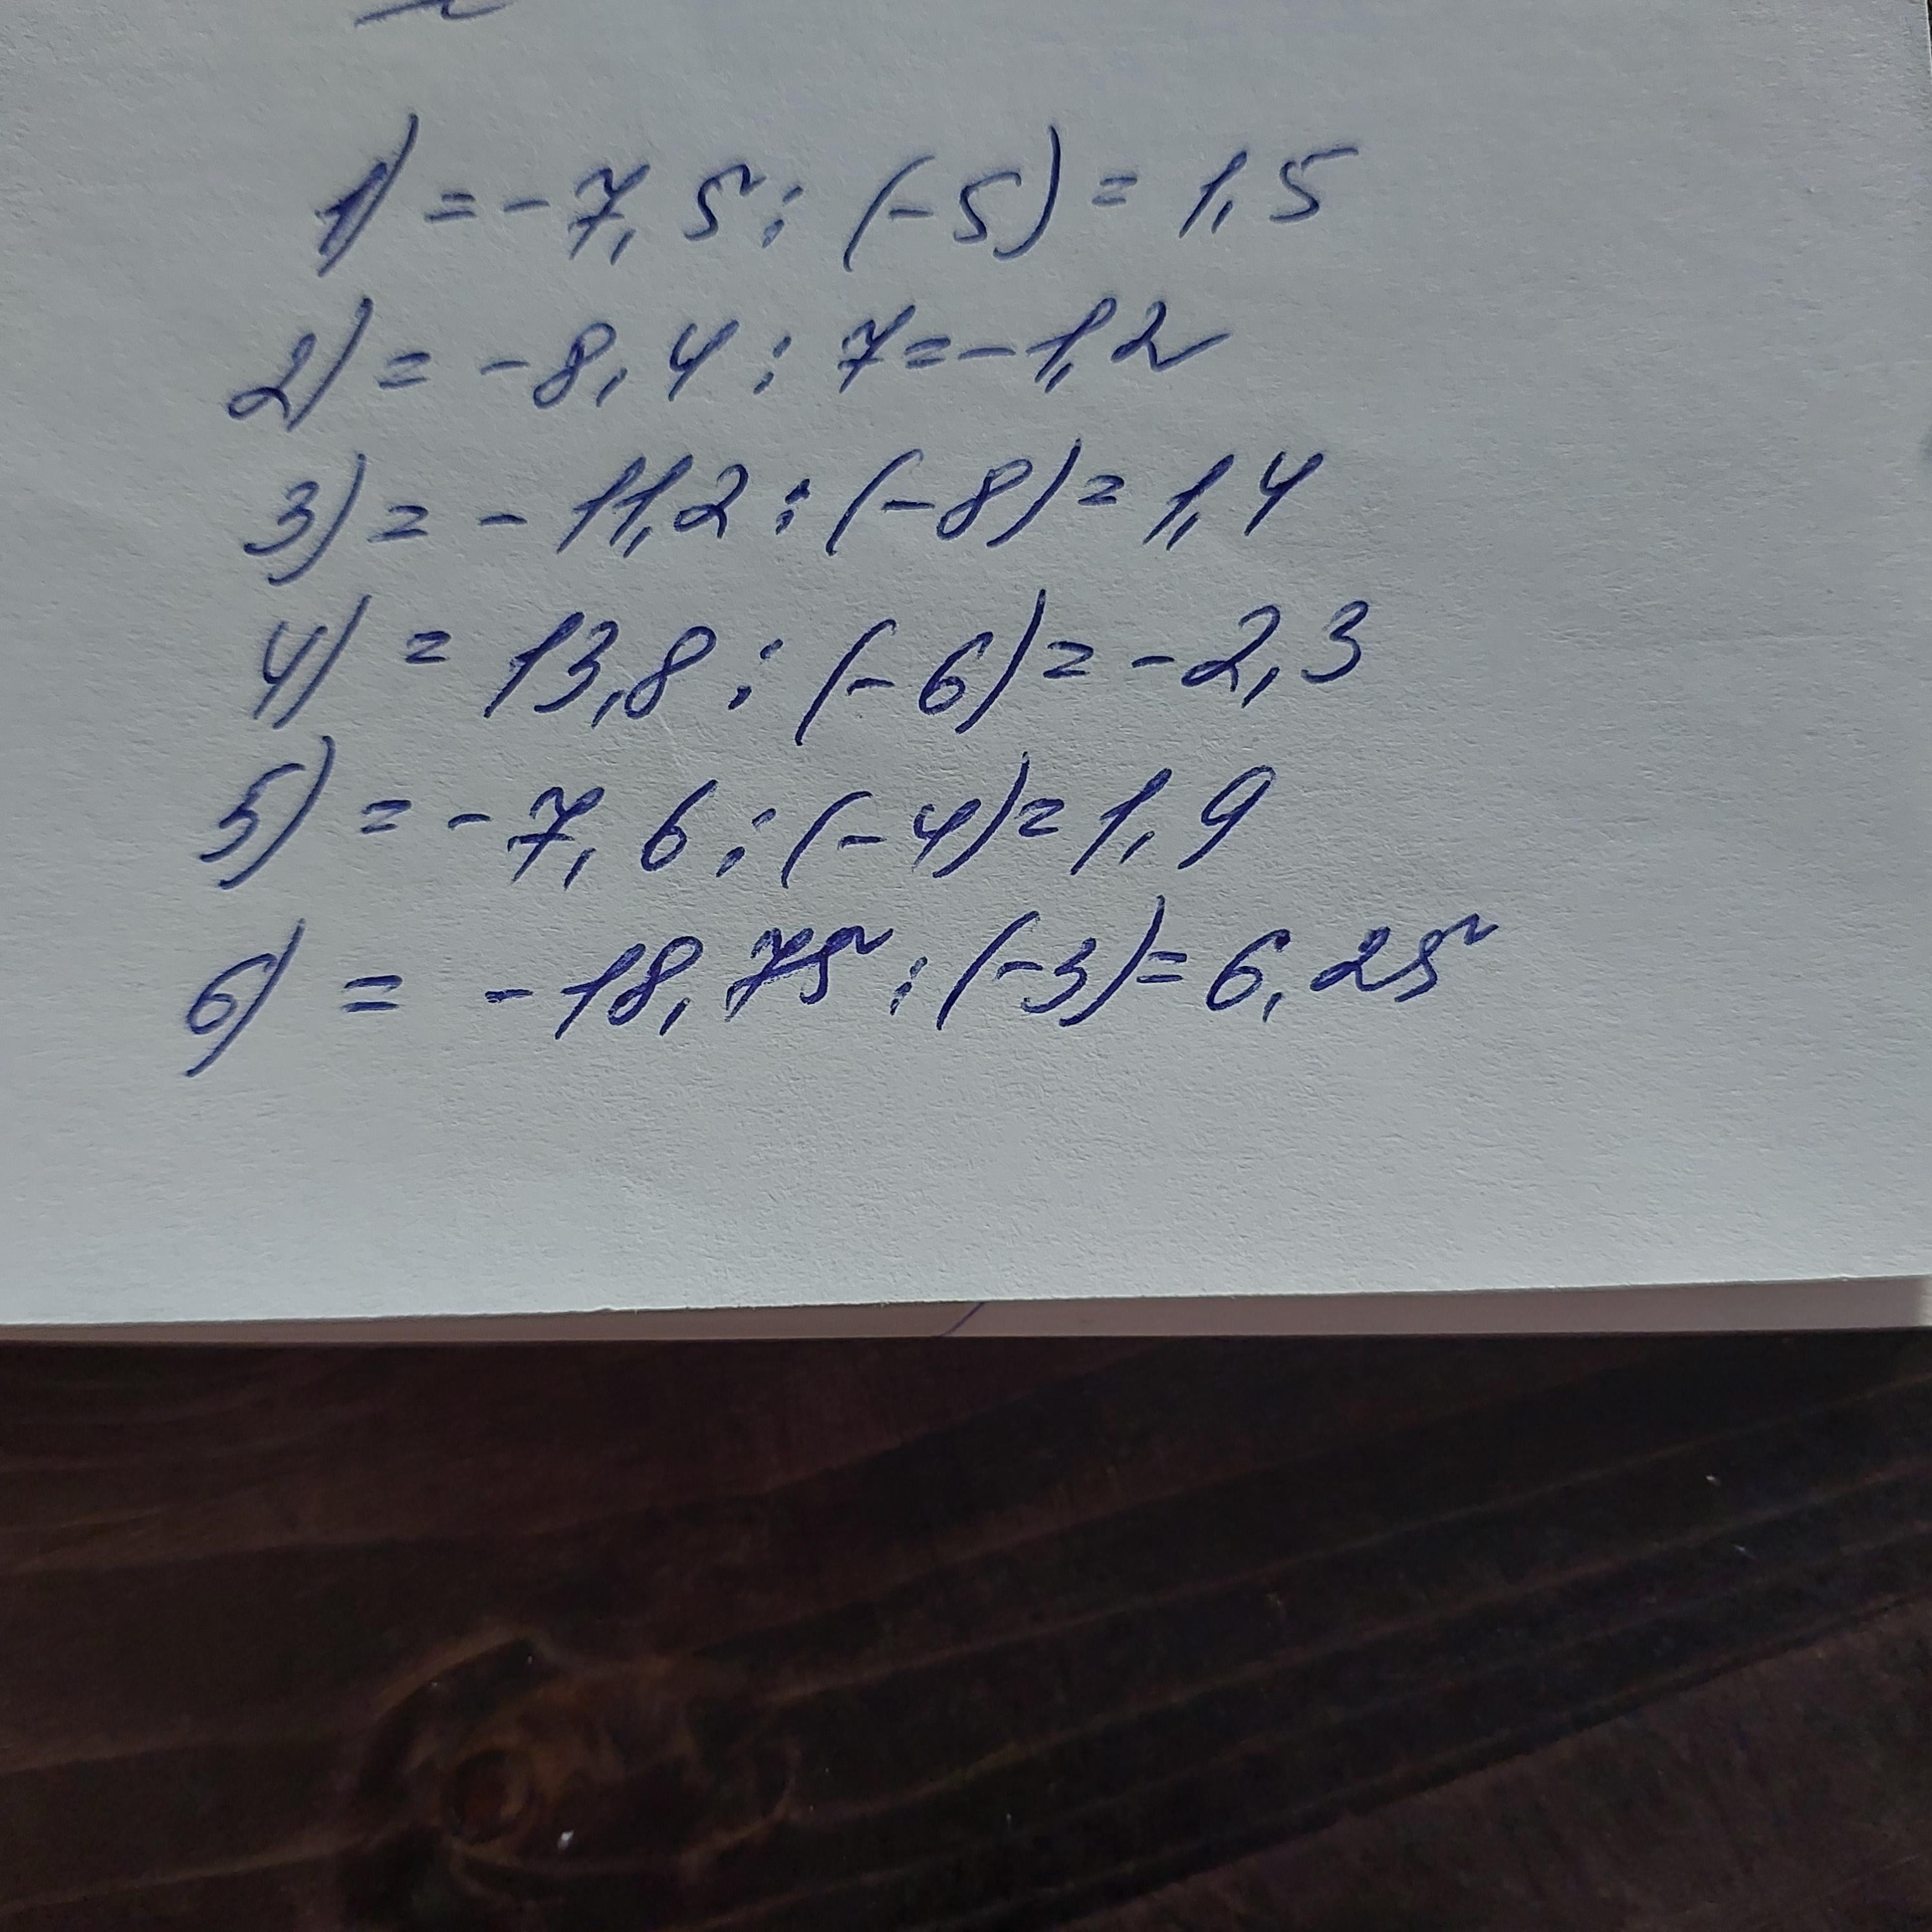 1) = -7,5 : (-5) = 1,5
2) = -8,4 : 7 = -1,2
3) = -11,2 : (-8) = 1,4
4) = 13,8 : (-6) = -2,3
5) = -7,6 : (-4) = 1,9
6) = -18,75 : (-3) = 6,25